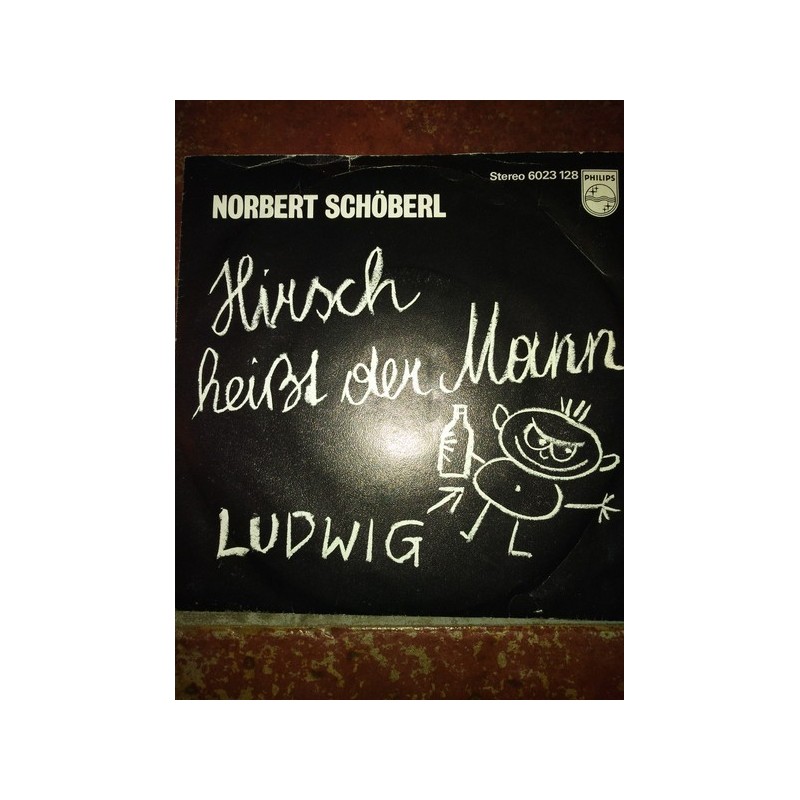 Stereo 6023 128
PHILIPS
NORBERT SCHÖBERL
Hirsch
heißt der Mann
LUDWIG